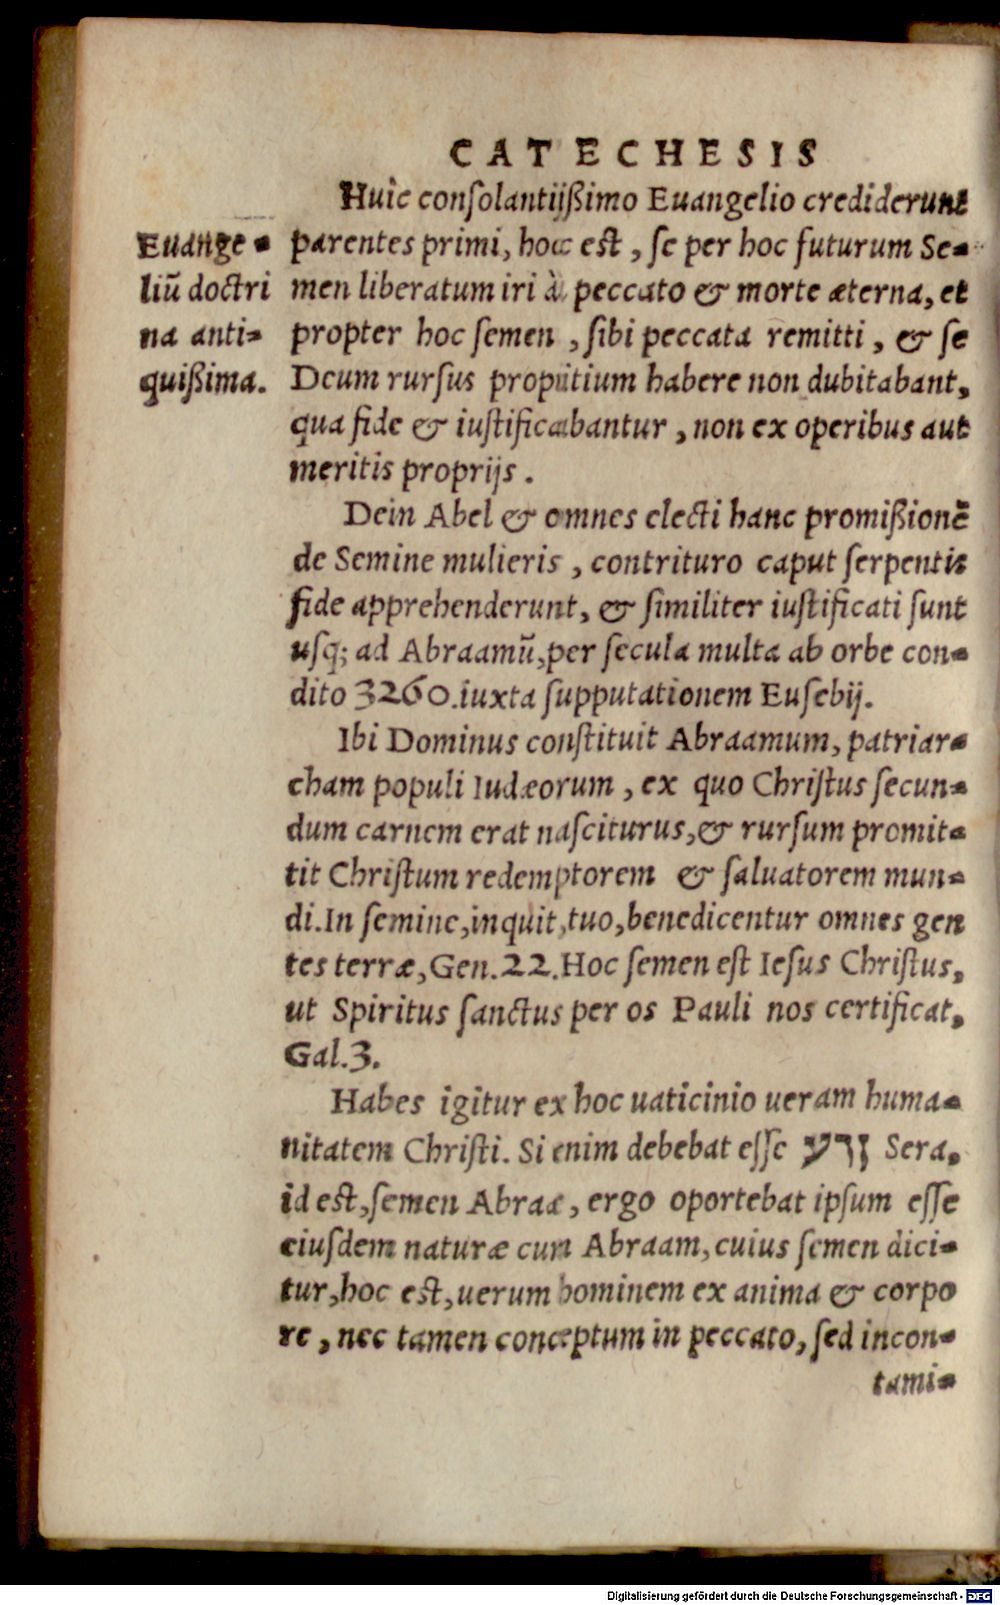 CATECHESIS
Huic conſolantijßimo Euangelio crediderunt
Euange-
liũ doctri
na anti-
quißima.
parentes primi, hoc est, ſe per hoc futurum Se-
men liberatum iri à peccato & morte æterna, et
propter hoc ſemen, ſibi peccata remitti, & ſe
Deum rurſus propitium habere non dubitabant,
qua fide & iuſtificabantur, non ex operibus aut
meritis proprijs.
Dein Abel & omnes electi hanc promißionẽ
de Semine mulieris, contrituro caput ſerpentis
fide apprehenderunt, & ſimiliter iuſtificati ſunt
uſq; ad Abraamũ, per ſecula multa ab orbe con-
dito 3260. iuxta ſupputationem Euſebij.
Ibi Dominus conſtituit Abraamum, patriar-
cham populi Iudæorum, ex quo Chriſtus ſecun-
dum carnem erat naſciturus, & rurſum promit-
tit Chriſtum redemptorem & ſaluatorem mun-
di. In ſemine, inquit, tuo, benedicentur omnes gen
tes terræ, Gen. 22. Hoc ſemen eſt Ieſus Chriſtus,
ut Spiritus ſanctus per os Pauli nos certificat,
Gal. 3.
Habes igitur ex hoc uaticinio ueram huma-
nitatem Chriſti. Si enim debebat eſſe זרע Sera,
id eſt, ſemen Abraæ, ergo oportebat ipſum eſſe
eiuſdem naturæ cum Abraam, cuius ſemen dici-
tur, hoc eſt, uerum hominem ex anima & corpo
re, nec tamen conceptum in peccato, ſed incon-
tami-
Digitalisierung gefördert durch die Deutsche Forschungsgemeinschaft - DFG